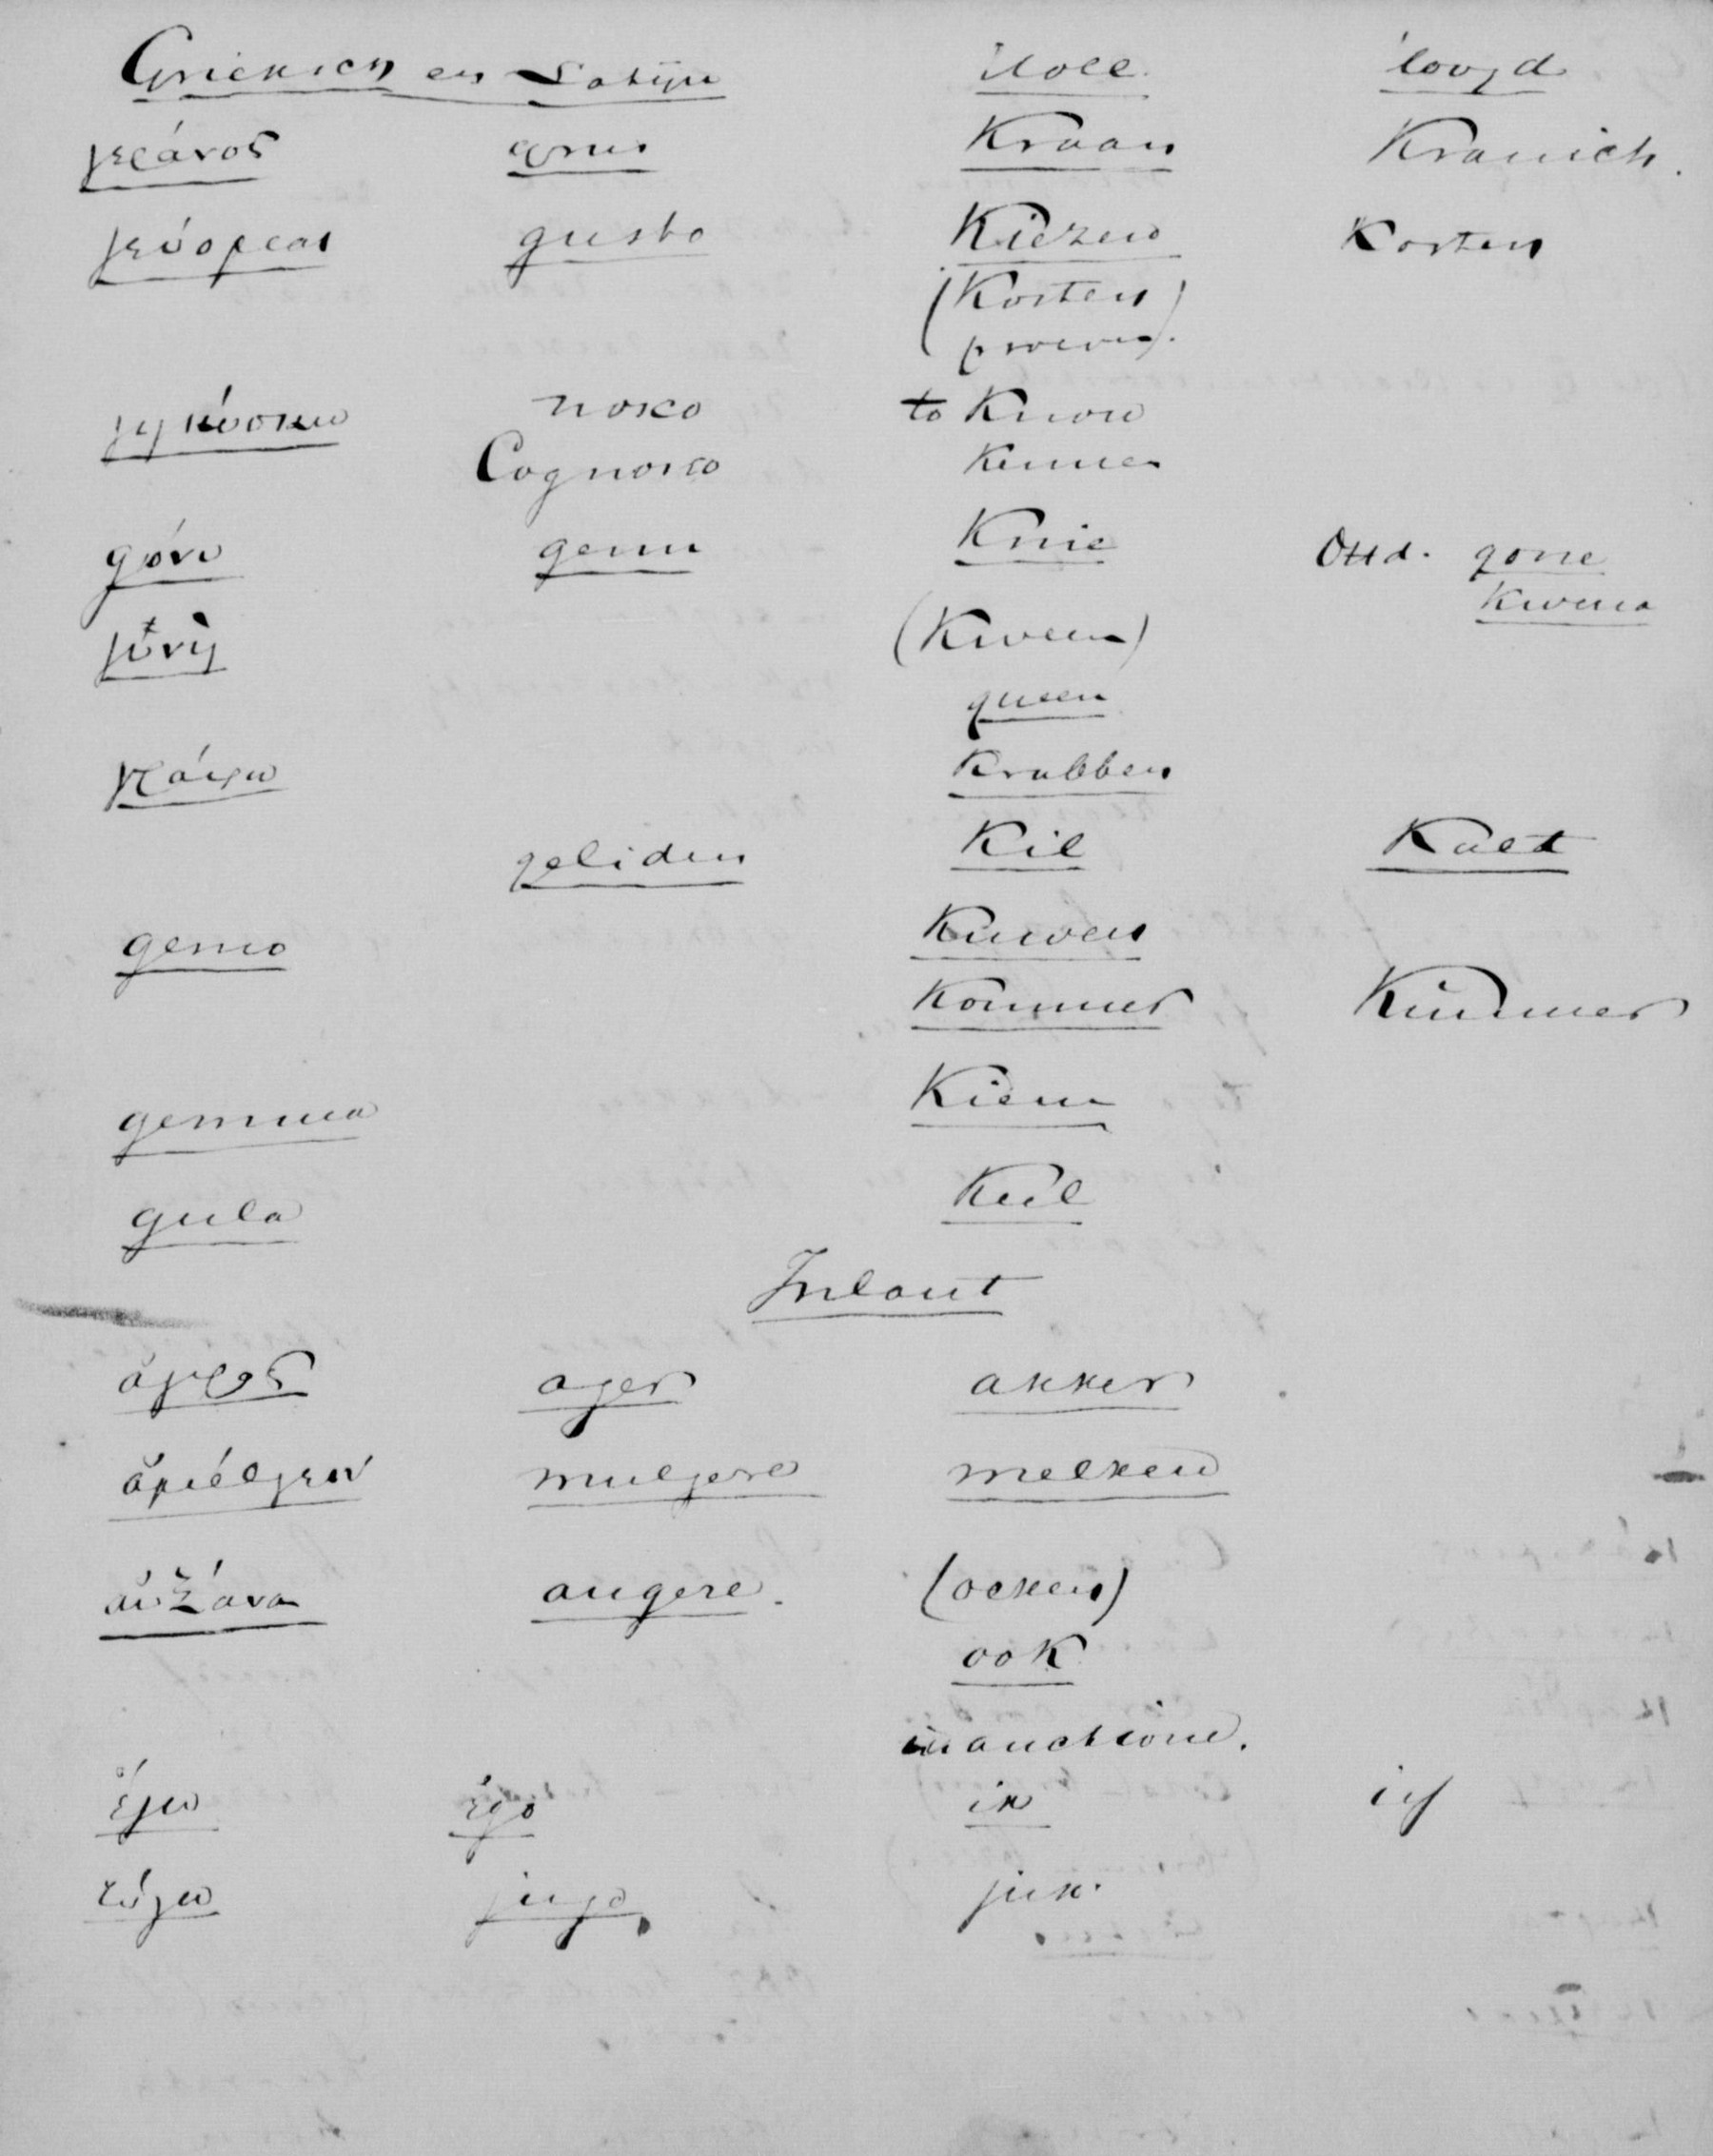 Grieksch en Latijn Holl. Hoogd
γεράνος grus Kraan Kranich.
γεύομαι gusto Kiezen Kosten
(Kosten
proeven).
γιγνώσκω nosco to Know
Cognosco Kennen
góνυ genu Knie Oud. gone
Kwena
γύνη (Kween)
queen
γράφω Krabben
gelidus Kil Kalt
gemo Kuwen
Kommer Kummer
gemma Kiem
gula Keel
Inlaut
ἀγρος ager akker
ἀμέλγειν mulgere melken
αὐξάνω augere. (ocken)
ook
in auctione.
ἐγω ego ik ich
ζύγω jugo juk.